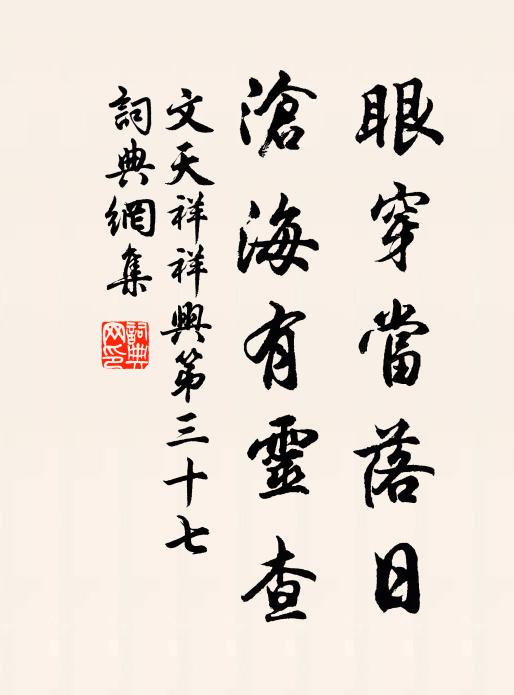 眼穿當落日
滄海有靈查
文天祥祥興第三十七
詞典網集
詞典網印